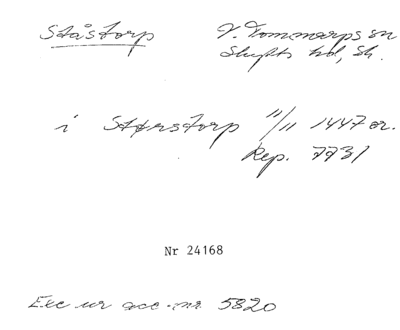 Ståstorp
V. Tommarps sn
Skytts hd, Sk.
i Størstorp 11/11 1447 or.
Rep. 7731
Nr 24168
Exc ur acc.nr 5820